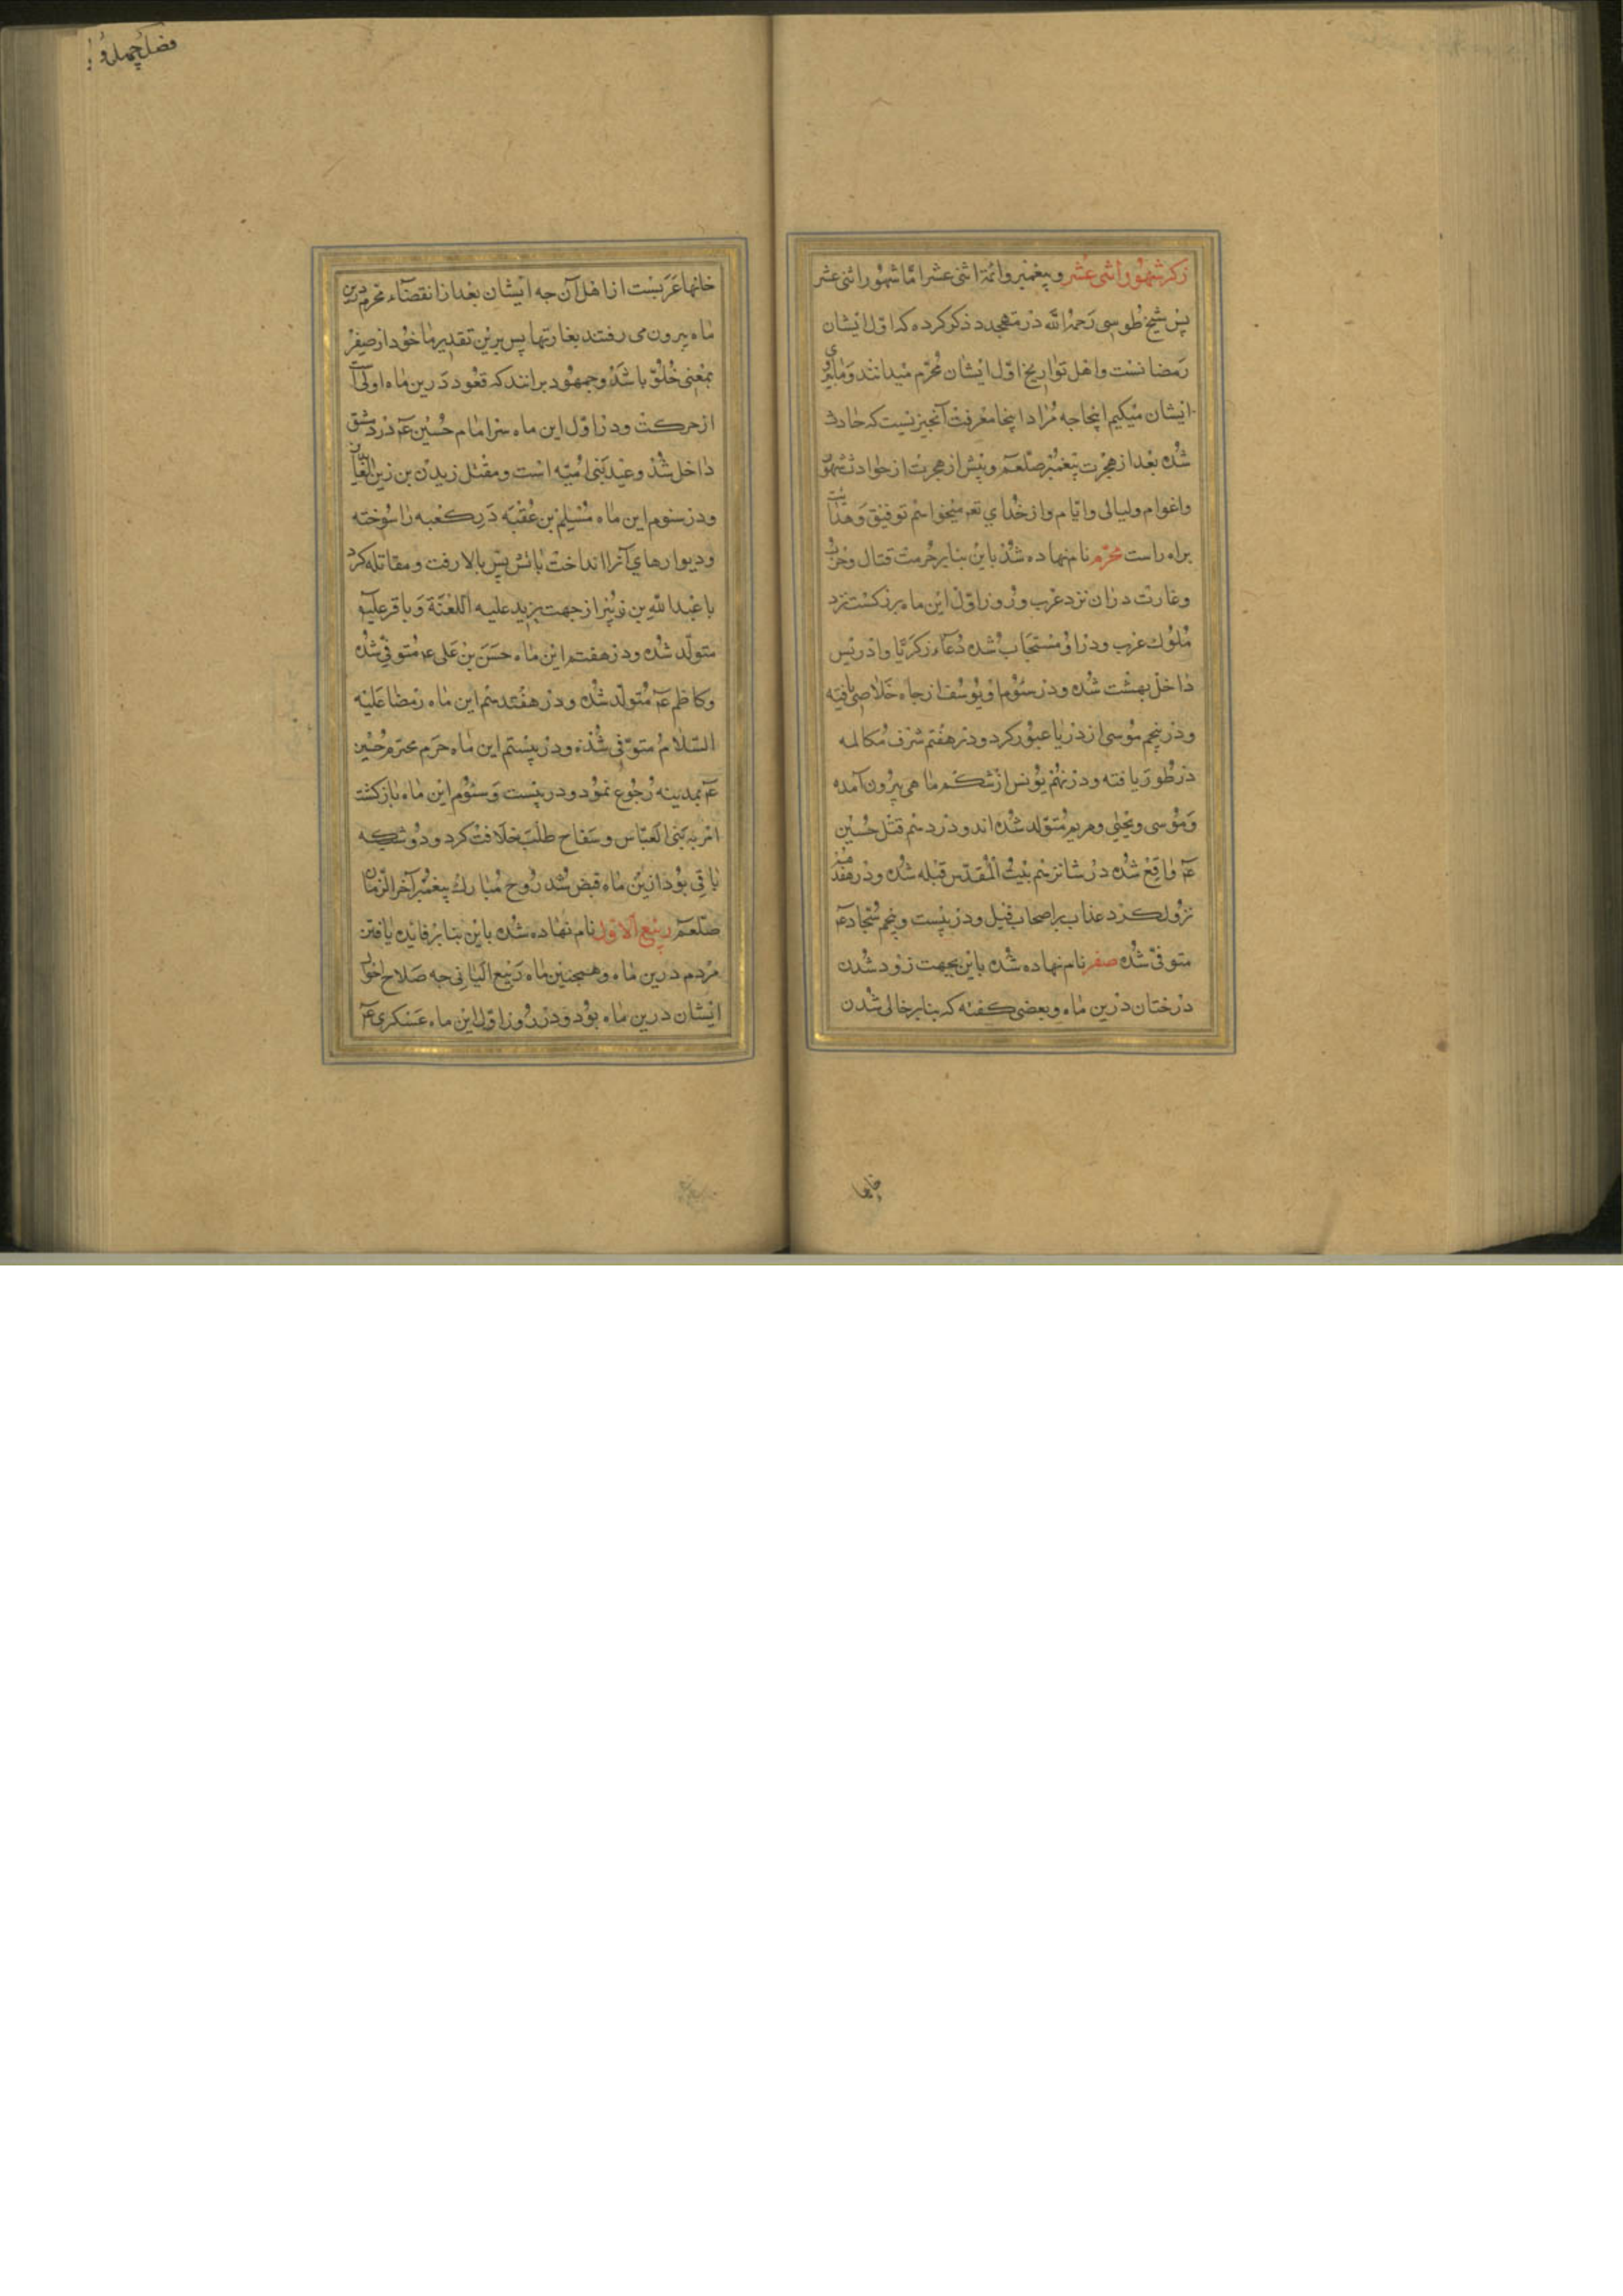 ذکر شهور اثنی عشر و پیغمبر و ائمة اثنی عشر اما شهور اثنی عشر
پس شیخ طوسی رحمه الله در متهجد ذکر کرده که اول ایشان
رمضانست و اهل تواریخ اول ایشان محرم میدانند و ما پیروی
ایشان میکیم اینجا جه مراد اینجا معرفت آنجیزیست که حادث
شده بعد از هجرت پیغمبر صلعم و پیش از هجرت از حوادث شهور
و اعوام و لیالی و ایام و از خدای تعـ میخواهم توفیق و هدایت
براه راست محرم نام نهاده شد باین بنابر حرمت قتال و حرب
و غارت دران نزد عرب و روز اول این ماه بزرکست نزد
ملوک عرب و در او مستجاب شده دعاء زکریا و ادریس
داخل بهشت شده و در سوم او یوسف از جاه خلاصی یافته
و در پنجم موسی از دریا عبور کرد و در هفتم شرف مکالمه
در طور یافته و در نهم یونس از شکم ماهی بیرون آمده
و موسی و یحیی و مریم متولد شده اند و در دهم قتل حسین
عـ واقع شده در شانزدهم بیت المقدس قبله شده و در هفدهم
نزول کرد عذاب بر اصحاب فیل و در بیست و پنجم سجاد عـ
متوفی شده صفر نام نهاده شده باین بجهت زرد شدن
درختان درین ماه و بعضی کفته که بنابر خالی شدن
خانها
فصل چهل و
خانها عربست از اهل آن جه ایشان بعد از انقضاء محرم درین
ماه بیرون می رفتند بغارتها پس برین تقدیر ماخود از صفر
بمعنی خلو باشد و جمهور برانند که قعود درین ماه اولی است
از حرکت و در اول این ماه سر امام حسین عـ در دمشق
داخل شد و عید بنی امیه است و مقتل زید بن زین العابدین
و در سوم این ماه مسلم بن عقبه در کعبه را سوخته
و دیوارهای آنرا انداخت باتش پس بالا رفت و مقاتله کرد
با عبدالله بن زبیر از جهت یزید علیه اللعنة و باقر علیه
متولد شده و در هفتم این ماه حسن بن علی عـ متوفی شده
و کاظم عـ متولد شده و در هفتدهم این ماه رضا علیه
السلام متوفی شده و در بیستم این ماه حرم محترم حسین
عـ بمدینه رجوع نمود و در بیست و سوم این ماه بازکشت
امر به بنی العباس و سفاح طلب خلافت کرد و دو شب که
باقی بود ازین ماه قبض شد روح مبارک پیغمبر آخر الزمان
صلعم ربیع الاول نام نهاده شده باین بنابر فایده یافتن
مردم درین ماه و همجنین ماه ربیع الثانی جه صلاح احوال
ایشان درین ماه بود و در روز اول این ماه عسکری عـ